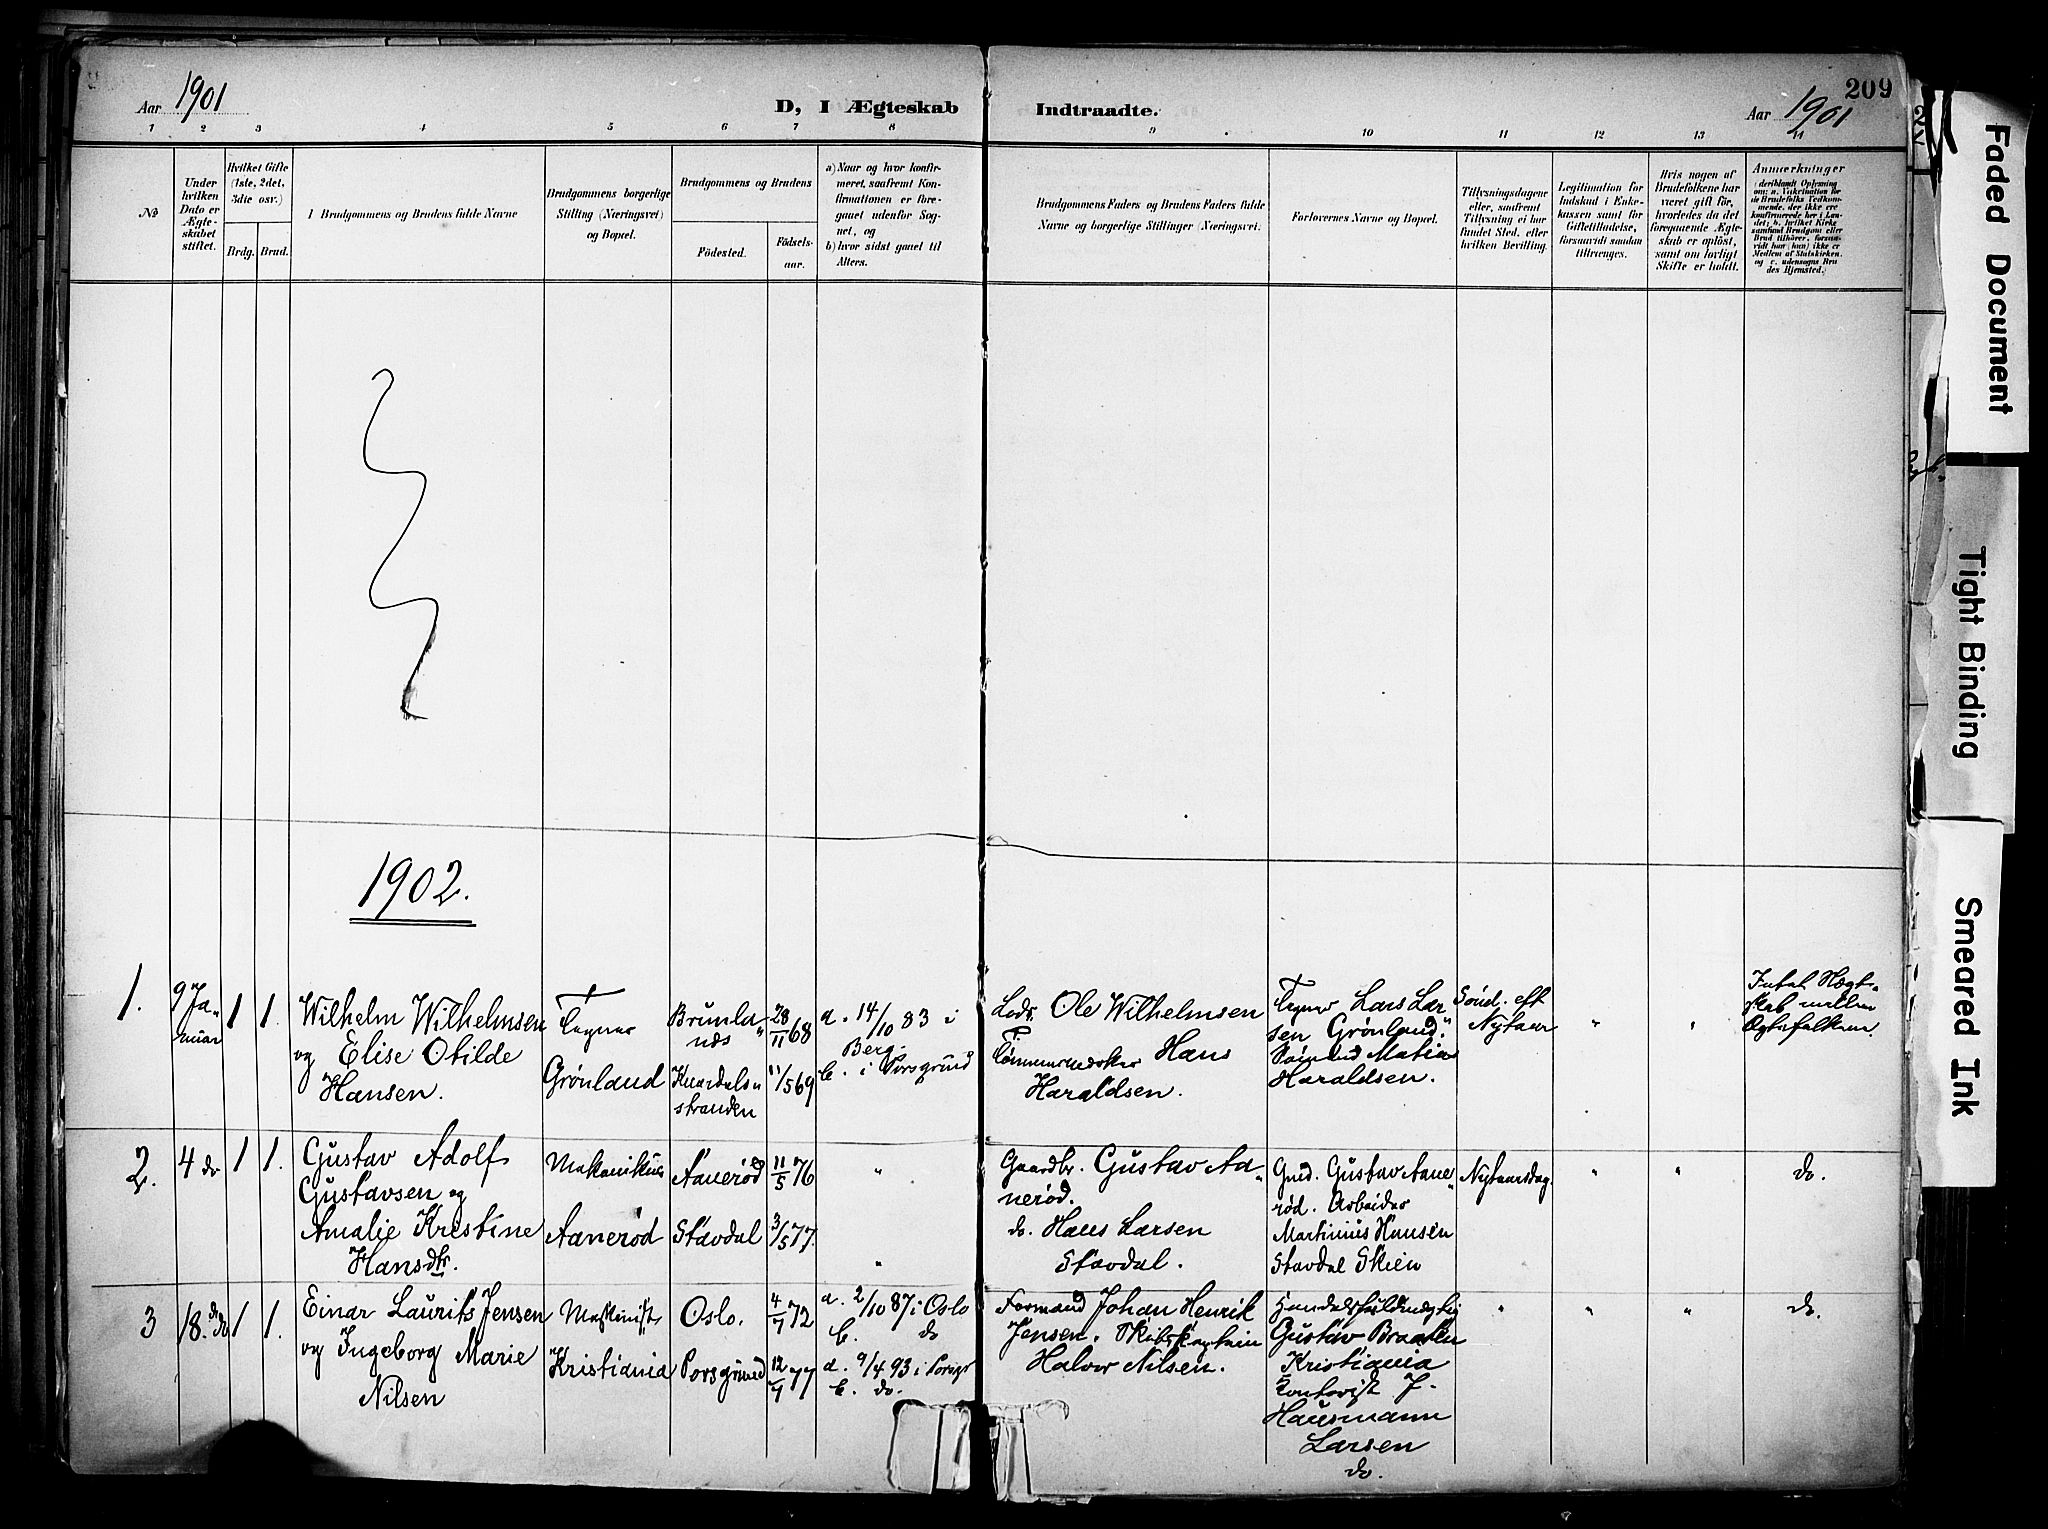 209
Aar 1901
D, I Ægteskab Indtraadte.
Aar 1901
1 2 3 4 5 6 7 8 9 10 11 12 13 14
№
Under hvilken Dato er Ægteskabet stiftet.
Hvilket Gifte (1ste, 2det, 3die osv.)
Brdg. Brud.
Brudgommens og Brudens fulde Navne
Brudgommens borgerlige Stilling (Næringsvei) og Bopæl.
Brudgommens og Brudens
Födested.
Födselsaar.
a) Naar og hvor konfirmeret, saafremt Konfirmationen er foregaaet udenfor Sognet, og
b) hvor sidst gaaet til Alters.
Brudgommens Faders og Brudens Faders fulde Navne og borgerlige Stillinger (Næringsvei.
Forlovernes Navne og Bopæl.
Tillysningsdagene eller, saafremt Tillysning ei har fundet Sted, efter hvilken Bevilling.
Legitimation for Indskud i Enkekassen samt for Giftetilladelse, forsaavidt saadan tiltrænges.
Hvis nogen af Brudefolkene har været gift før, hvorledes da det foregaaende Ægteskab er oplöst, samt om lovligt Skifte er holdt.
Anmærkninger
1902.
1. 9 Januar 1 1.
Wilhelm Wilhelmsen
og Elise Otilde
Hansen.
Tegner
Grönland
Brunlanæs
Knardalsstranden
28/11 68
11/5 69
a. 14/10 83 i
Berg.
b. i Porsgrund
Lods. Ole Wilhelmsen
Tömmermærker Hans
Haraldsen.
Tegner Lars Larsen Grönland.
Matias
Haraldsen.
Sönd. eft
Nytaar
"
"
2. 4 do 1 1.
Gustav Adolf
Gustavsen og
Amalie Kristine
Hansdtr.
Mekanikus
Aanerød
Aanerød
Stavdal
11/5 76
3/5 77.
"
"
Gaardbr. Gustav Aanerød.
do. Hans Larsen
Stavdal.
Grd. Gustav Aanerød. Arbeider
Martinius Hansen
Stavdal Skien
Nytaarsdag.
"
"
do.
3 18. do 1 1.
Einar Laurits Jensen
og Ingeborg Marie
Nilsen
Maskinist
Kristiania
Oslo.
Porsgrund
4/7 72
12/7 77
a. 2/10 87 i Oslo
b. do
a. 9/4 93 i Porsgr
b. do.
Formand Johan Henrik
Jensen. Skibskaptein
Halvor Nilsen.
Handelsfuldmægtig
Gustav Braaten
Kristiania
Kontorist J.
Hausmann
Larsen
do.
"
"
"
do.
Faded Document
Tight Binding
Smeared Ink